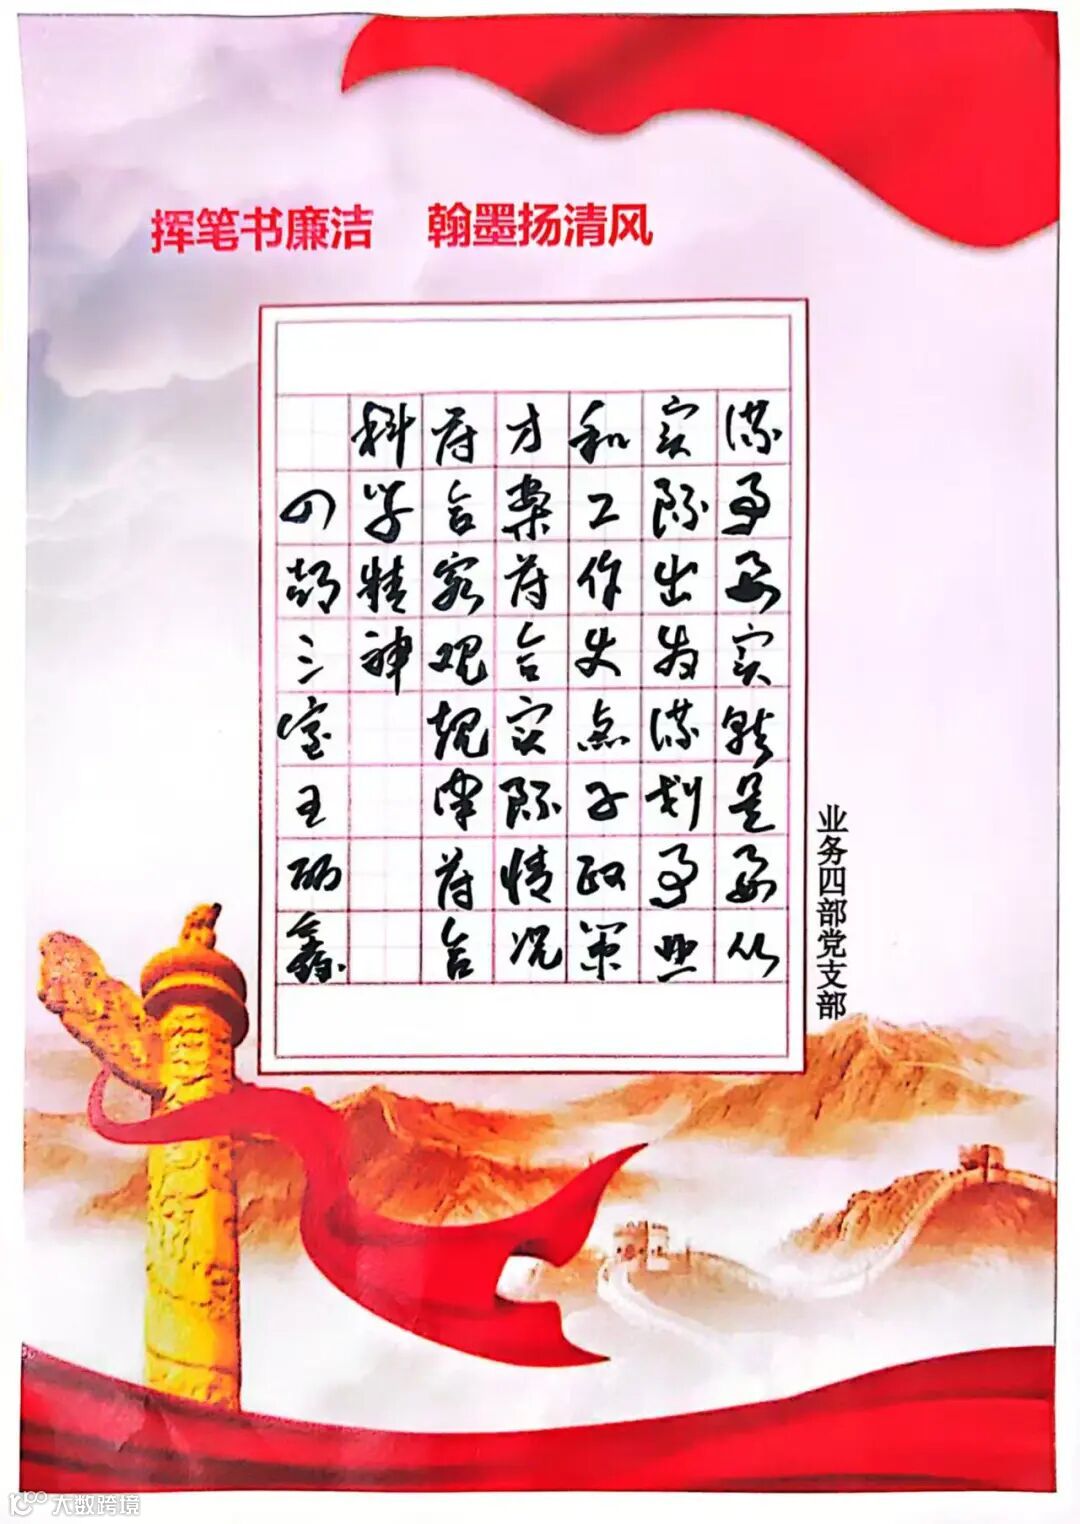 挥笔书廉洁 翰墨扬清风
谋事要实就是要从
实际出发谋划事业
和工作使点子政策
方案符合实际情况
符合客观规律符合
科学精神
四部三室王鑫
业务四部党支部
大数跨境